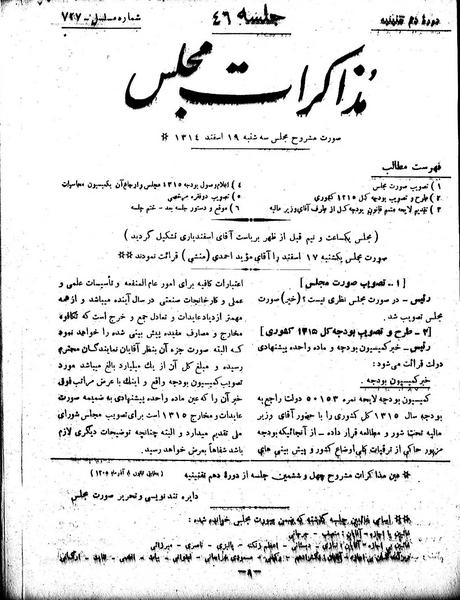 دورهٔ دهم تقنینیه
جلسه ۴۶
شماره مسلسل - ۷۲۷
مذاکرات مجلس
صورت مشروح مجلس سه شنبه ۱۹ اسفند ۱۳۱۴
فهرست مطالب
۱) تصویب صورت مجلس
۲) طرح و تصویب بودجه کل ۱۳۱۵ کشوری
۳) تقدیم لایحه متمم قانون بودجه کل از طرف آقای وزیر مالیه
۴) اعلام وصول بودجه ۱۳۱۵ مجلس و ارجاع آن بکمیسیون محاسبات
۵) تصویب دو فقره مرخصی
۶) موقع و دستور جلسه بعد - ختم جلسه
(مجلس یکساعت و نیم قبل از ظهر بریاست آقای اسفندیاری تشکیل گردید)
صورت مجلس یکشنبه ۱۷ اسفند را آقای مؤید احمدی (منشی) قرائت نمودند
[۱ - تصویب صورت مجلس]
رئیس - در صورت مجلس نظری نیست؟ (خیر) صورت
مجلس تصویب شد.
[۲ - طرح و تصویب بودجه کل ۱۳۱۵ کشوری]
رئیس - خبر کمیسیون بودجه و ماده واحده پیشنهادی
دولت قرائت می‌شود:
خبر کمیسیون بودجه.
کمیسیون بودجه لایحه نمره ۵۰۱۵۳ دولت راجع به
بودجه سال ۱۳۱۵ کل کشوری را با حضور آقای وزیر
مالیه تحت شور و مطالعه قرار داده - از آنجائیکه بودجه
مزبور حاکی از ترقیات کلی اوضاع کشور و پیش بینی های
اعتبارات کافیه برای امور عام‌المنفعه و تأسیسات علمی و
عملی و کارخانجات صنعتی در سال آینده میباشد و از همه
مهمتر ازدیاد عایدات و تعادل جمع و خرج است که تکافوی
مخارج و مصارف مفیده پیش بینی شده را خواهد نمود
که البته صورت جزء آن بنظر آقایان نمایندگان محترم
رسیده و مبلغ کل آن از یک میلیارد بالغ میباشد مورد
تصویب کمیسیون بودجه واقع و اینک با عرض مراتب فوق
خبر آن را که عین ماده واحده پیشنهادی به ضمیمه صورت
عایدات و مخارج ۱۳۱۵ است برای تصویب مجلس شورای
ملی تقدیم میدارد و البته چنانچه توضیحات دیگری لازم
باشد شفاهاً بعرض خواهد رسید.
عین مذاکرات مشروح چهل و ششمین جلسه از دورهٔ دهم تقنینیه
دایره تند نویسی و تحریر صورت مجلس
اسامی غائبین جلسه گذشته که ضمن صورت مجلس خوانده شده: